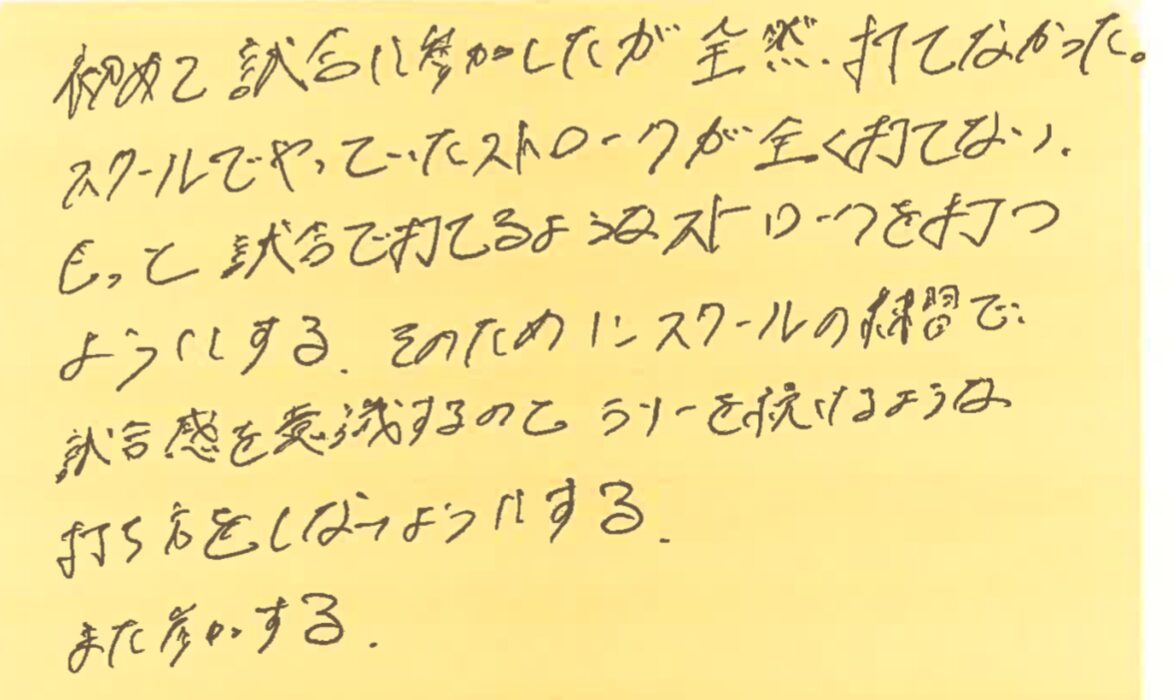 初めて試合に参加したが全然打てなかった。
スクールでやっていたストロークが全く打てない.
もっと試合で打てるようなストロークを打つ
ようにする. そのためにスクールの練習で
試合感を意識するのと ラリーを続けるような
打ち方をしないようにする.
また参加する.